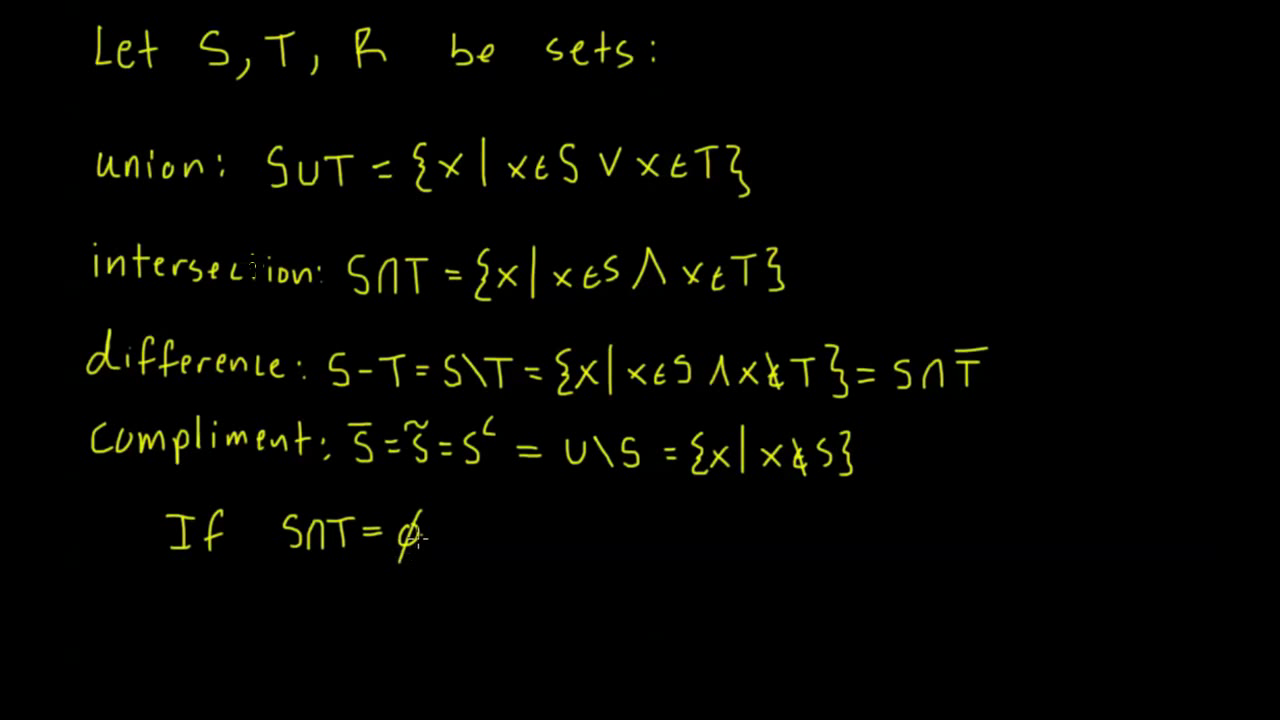 Let S, T, R be sets:
union: S∪T = {x | x∈S ∨ x∈T}
intersection: S∩T = {x | x∈S ∧ x∈T}
difference: S-T = S\T = {x | x∈S ∧ x∉T} = S∩T̅
Compliment: S̅ = S̃ = Sᶜ = U\S = {x | x∉S}
If S∩T = ϕ